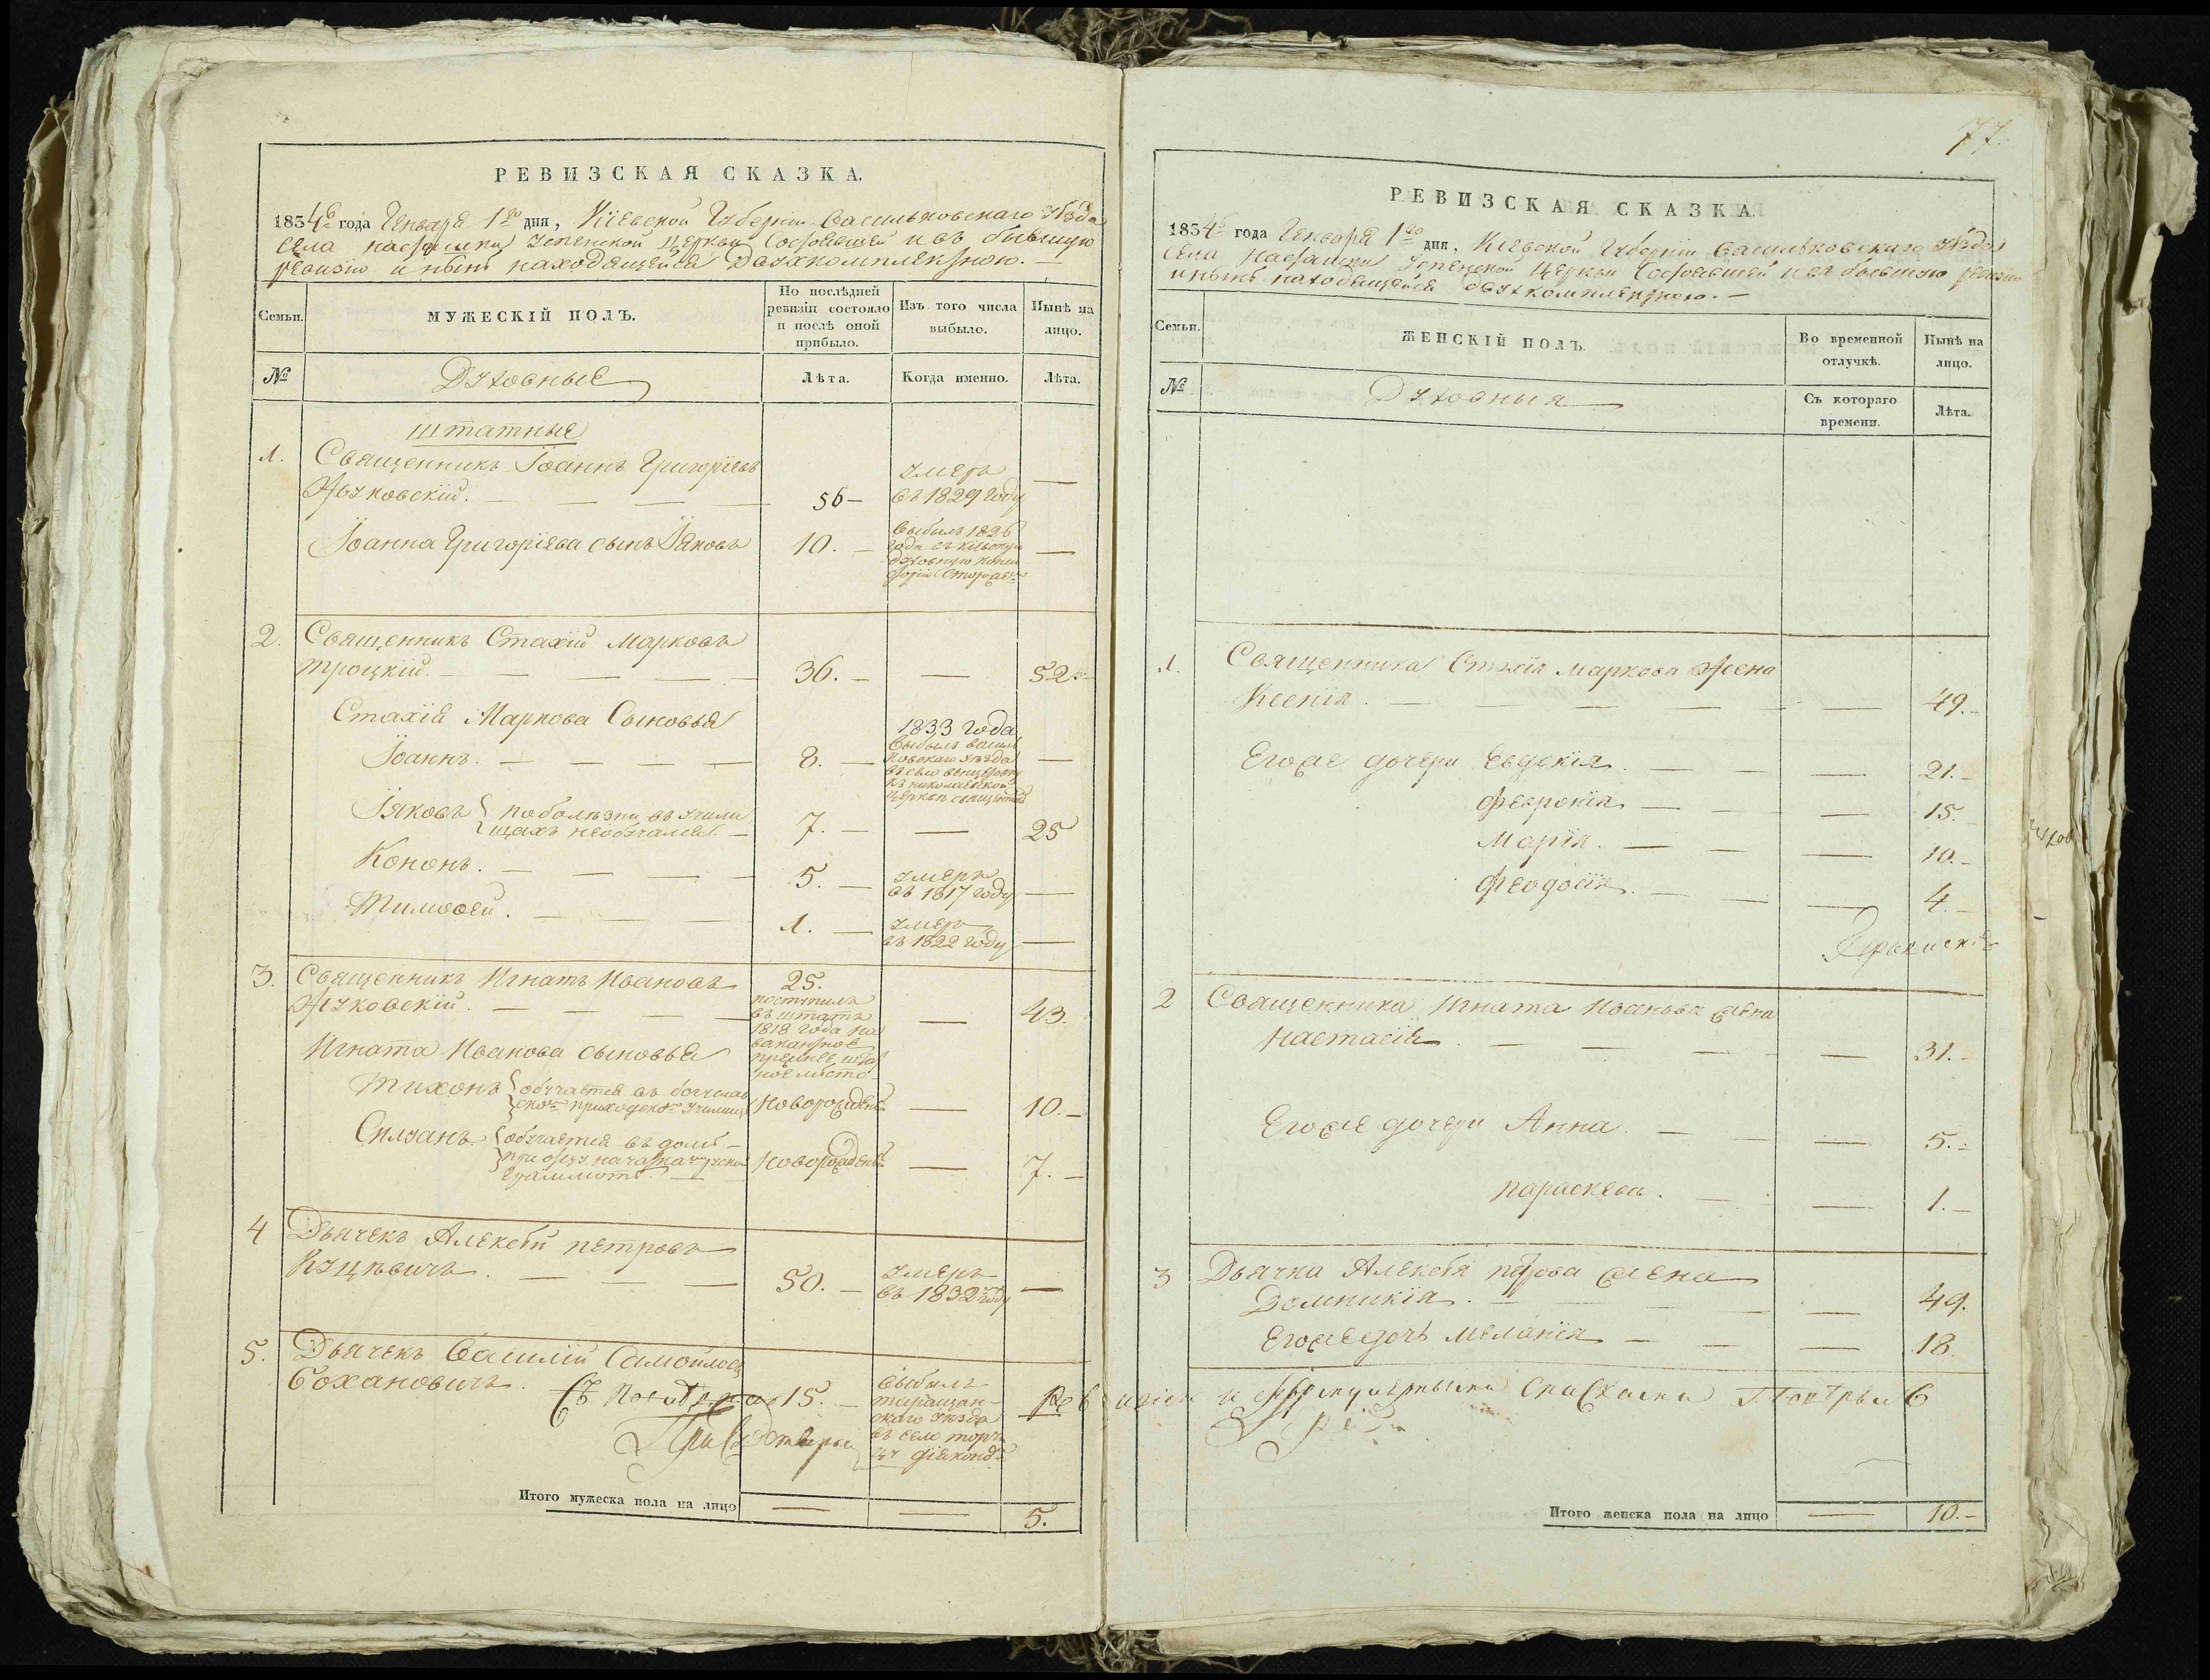 РЕВИЗСКАЯ СКАЗКА.
1834го года Генваря 1го дня, Кіевской Губерніи Васильковскаго уѣзда
села Насташки Успенской церкви состоявшей и въ бывшую
ревизію и нынѣ находящейся двухкомплектною. —
Семьи.
МУЖЕСКІЙ ПОЛЪ.
По послѣдней
ревизіи состояло
и послѣ оной
прибыло.
Изъ того числа
выбыло.
Нынѣ на
лицо.
№
Духовные
Лѣта.
Когда именно.
Лѣта.
Штатные
1. Священникъ Іоаннъ Григоріевъ
Жуковскій. — 56 — умеръ
въ 1829 году —
Іоанна Григоріева сынъ Іаковъ 10. — выбылъ 1826
года въ Кіевскую
духовную
—
2. Священникъ Стахій Марковъ
Троцкій. — 36. — — 52
Стахія Маркова сыновья
Іоаннъ. — 8. — 1833 года
выбылъ Василь
ковскаго уѣзда
въ село
къ Николаевской
церкви
—
Іаковъ по болѣзни въ учили
щахъ необучался. — 7. — — 25
Кононъ. — 5. — умеръ
въ 1817 году —
Тимофей. — 1. — умеръ
въ 1822 году —
3. Священникъ Игнатъ Ивановъ
Жуковскій. — 25.
поступилъ
въ штатъ
1818 года на
вакантное
прежнее штат
ное мѣсто
— 43.
Игната Иванова сыновья
Тихонъ обучается въ богуслав
ском приходском училищѣ новорожденъ — 10. —
Силуанъ обучается въ домѣ —
при отцу
грамматѣ. — новорожденъ — 7. —
4 Дьячекъ Алексѣй Петровъ
Куцѣвичъ. — 50. — умеръ
въ 1832 году —
5. Дьячекъ Василій Самойловъ
Боханович. 15. — выбылъ
таращан-
скаго уѣзда
въ село
Итого мужеска пола на лицо — — 5.
77.
РЕВИЗСКАЯ СКАЗКА.
1834го года Генваря 1го дня, Кіевской Губерніи Васильковскаго уѣзда
села Насташки Успенской церкви состоявшей и въ бывшую ревизію
и нынѣ находящейся двухкомплектною. —
Семьи.
ЖЕНСКІЙ ПОЛЪ
Во временной
отлучкѣ.
Нынѣ на
лицо.
№
Духовныя
Съ котораго
времени.
Лѣта.
1. Священника Стахія Маркова жена
Ксенія. — — 49. —
Его же дочери Евдокія. — — 21. —
Февронія — — 15. —
Марія. — — 10. —
Феодосія. — — 4. —
2 Священника Игната Иванова жена
Настасія. — — 31. —
Его же дочери Анна. — — 5.
Параскева. — — 1. —
3 Дьячка Алексѣя Петрова жена
Домникія. — — 49.
Его же дочь Меланія — — 18.
Итого женска пола на лицо — 10. —